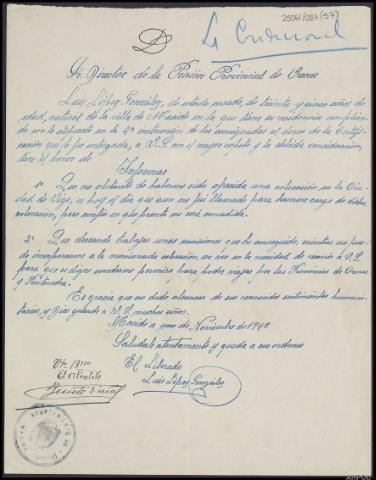 25061/037 (57)
La Condicional
Sr. Director de la Prisión Provincial de Orense
Luis López González, de estado casado, de treinta y cinco años de
edad, natural de la villa de Maside en la que tiene su residencia cumplien-
do con lo dispuesto en la 4ª instrucción de las consignadas al dorso de la Certifi-
cación que le fue entregada, a V.S. con el mayor respeto y la debida consideración,
tiene el honor de
Informar
1º Que no obstante de haberme sido ofrecida una colocación en la Ciu-
dad de Vigo, es hoy el día que aun no fui llamado para hacerme cargo de dicha
colocación, pero confío en que pronto me será concedida.
2º Que deseando trabajar unas comisiones que he conseguido, mientras no pue-
da incorporarme a la mencionada colocación, me veo en la necesidad de recurrir a V.S.
para que se digne concederme permiso para poder viajar por las Provincias de Orense
y Pontevedra.
Es gracia que no dudo alcanzar de sus conocidos sentimientos humani-
tarios, y Dios guarde a V.S. muchos años.
Maside a uno de Noviembre de 1942
Saludale atentamente y queda a sus ordenes
El Liberado
Luis López González
El Alcalde